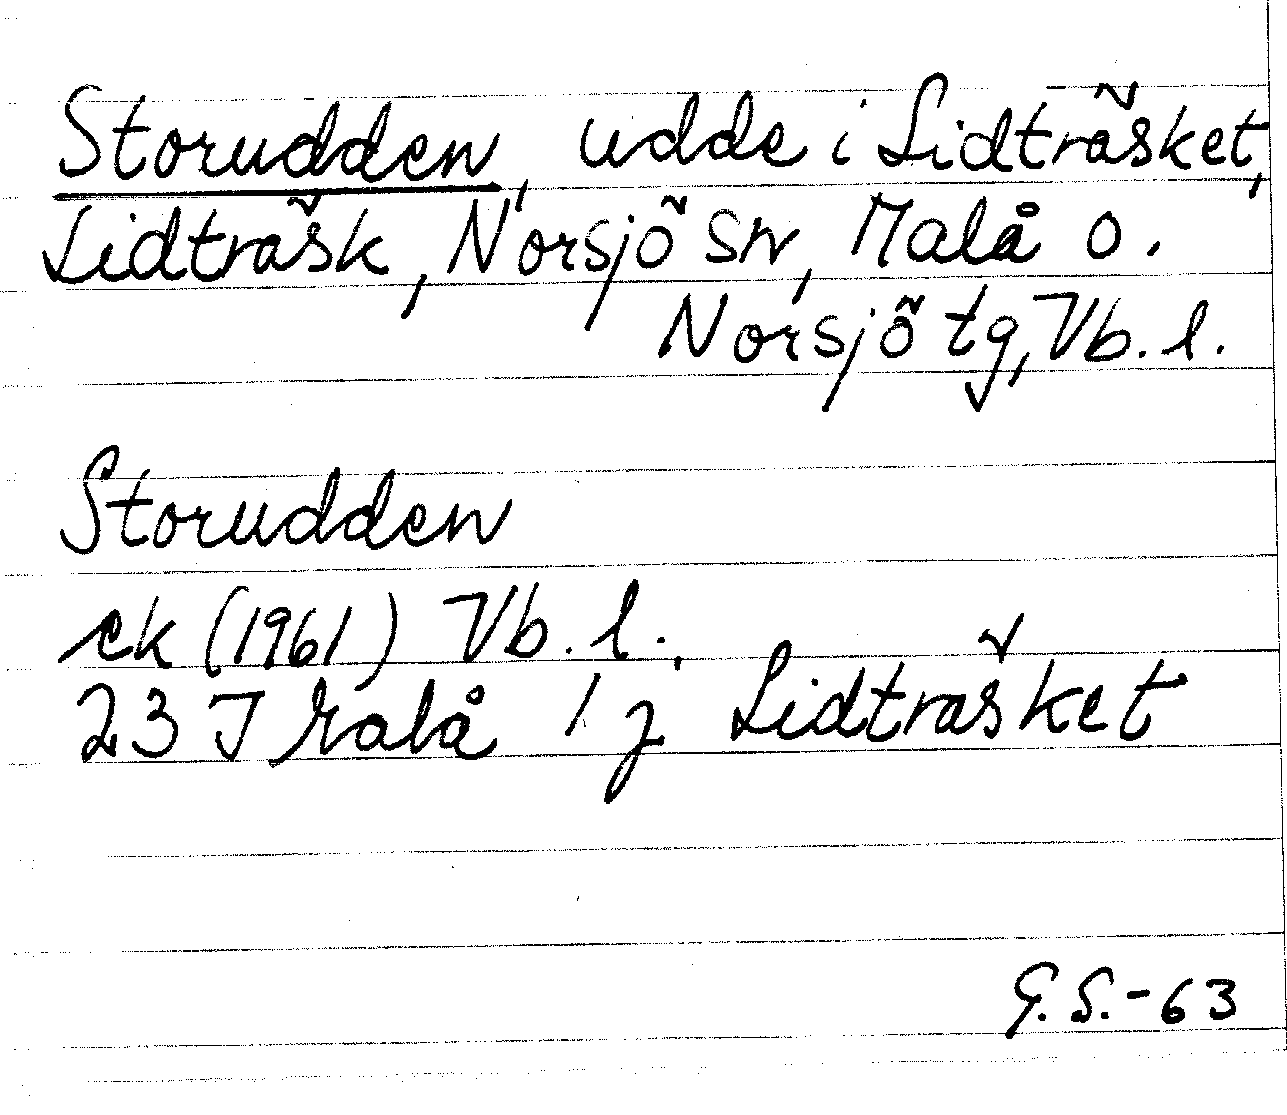 Storudden, udde i Lidträsket,
Lidträsk, Norsjö sn, Malå o.
Norsjö tg, Vb. l.
Storudden
ek (1961) Vb. l.
23 J Malå 1 j Lidträsket
G. S. - 63